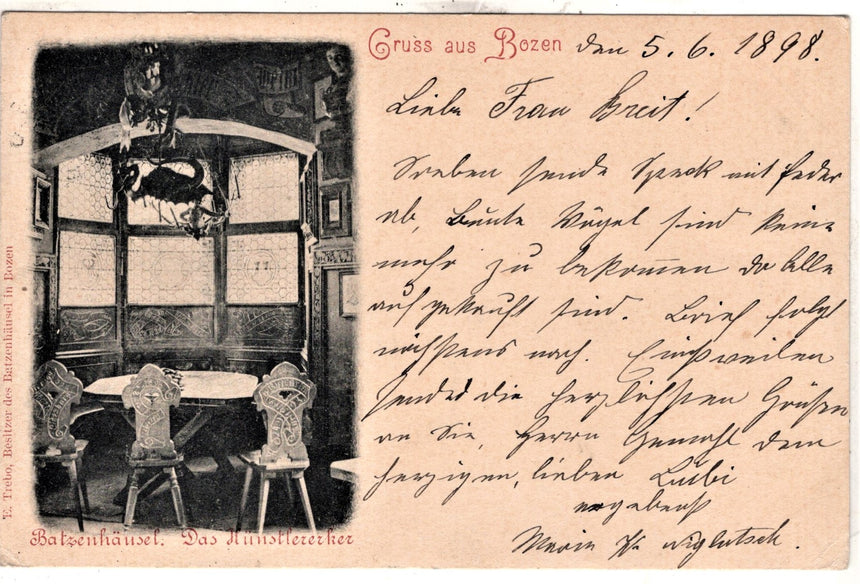 Gruss aus Bozen den 5. 6. 1898.
Liebe Frau Breit!
Soeben sende Speck mit Feder
ab, Bunte Vögel sind keine
mehr zu bekom̅en da alle
aufgekauft sind. Brief folgt
nächstens nach. Einstweilen
sendet die herzlichsten Grüßen
an Sie, Herrn Gemahl dem
herzigen, lieben Luibi
ergebenst
Marie
Batzenhäusel. Das Künstlererker
E. Trebo, Besitzer des Batzenhäusel in Bozen